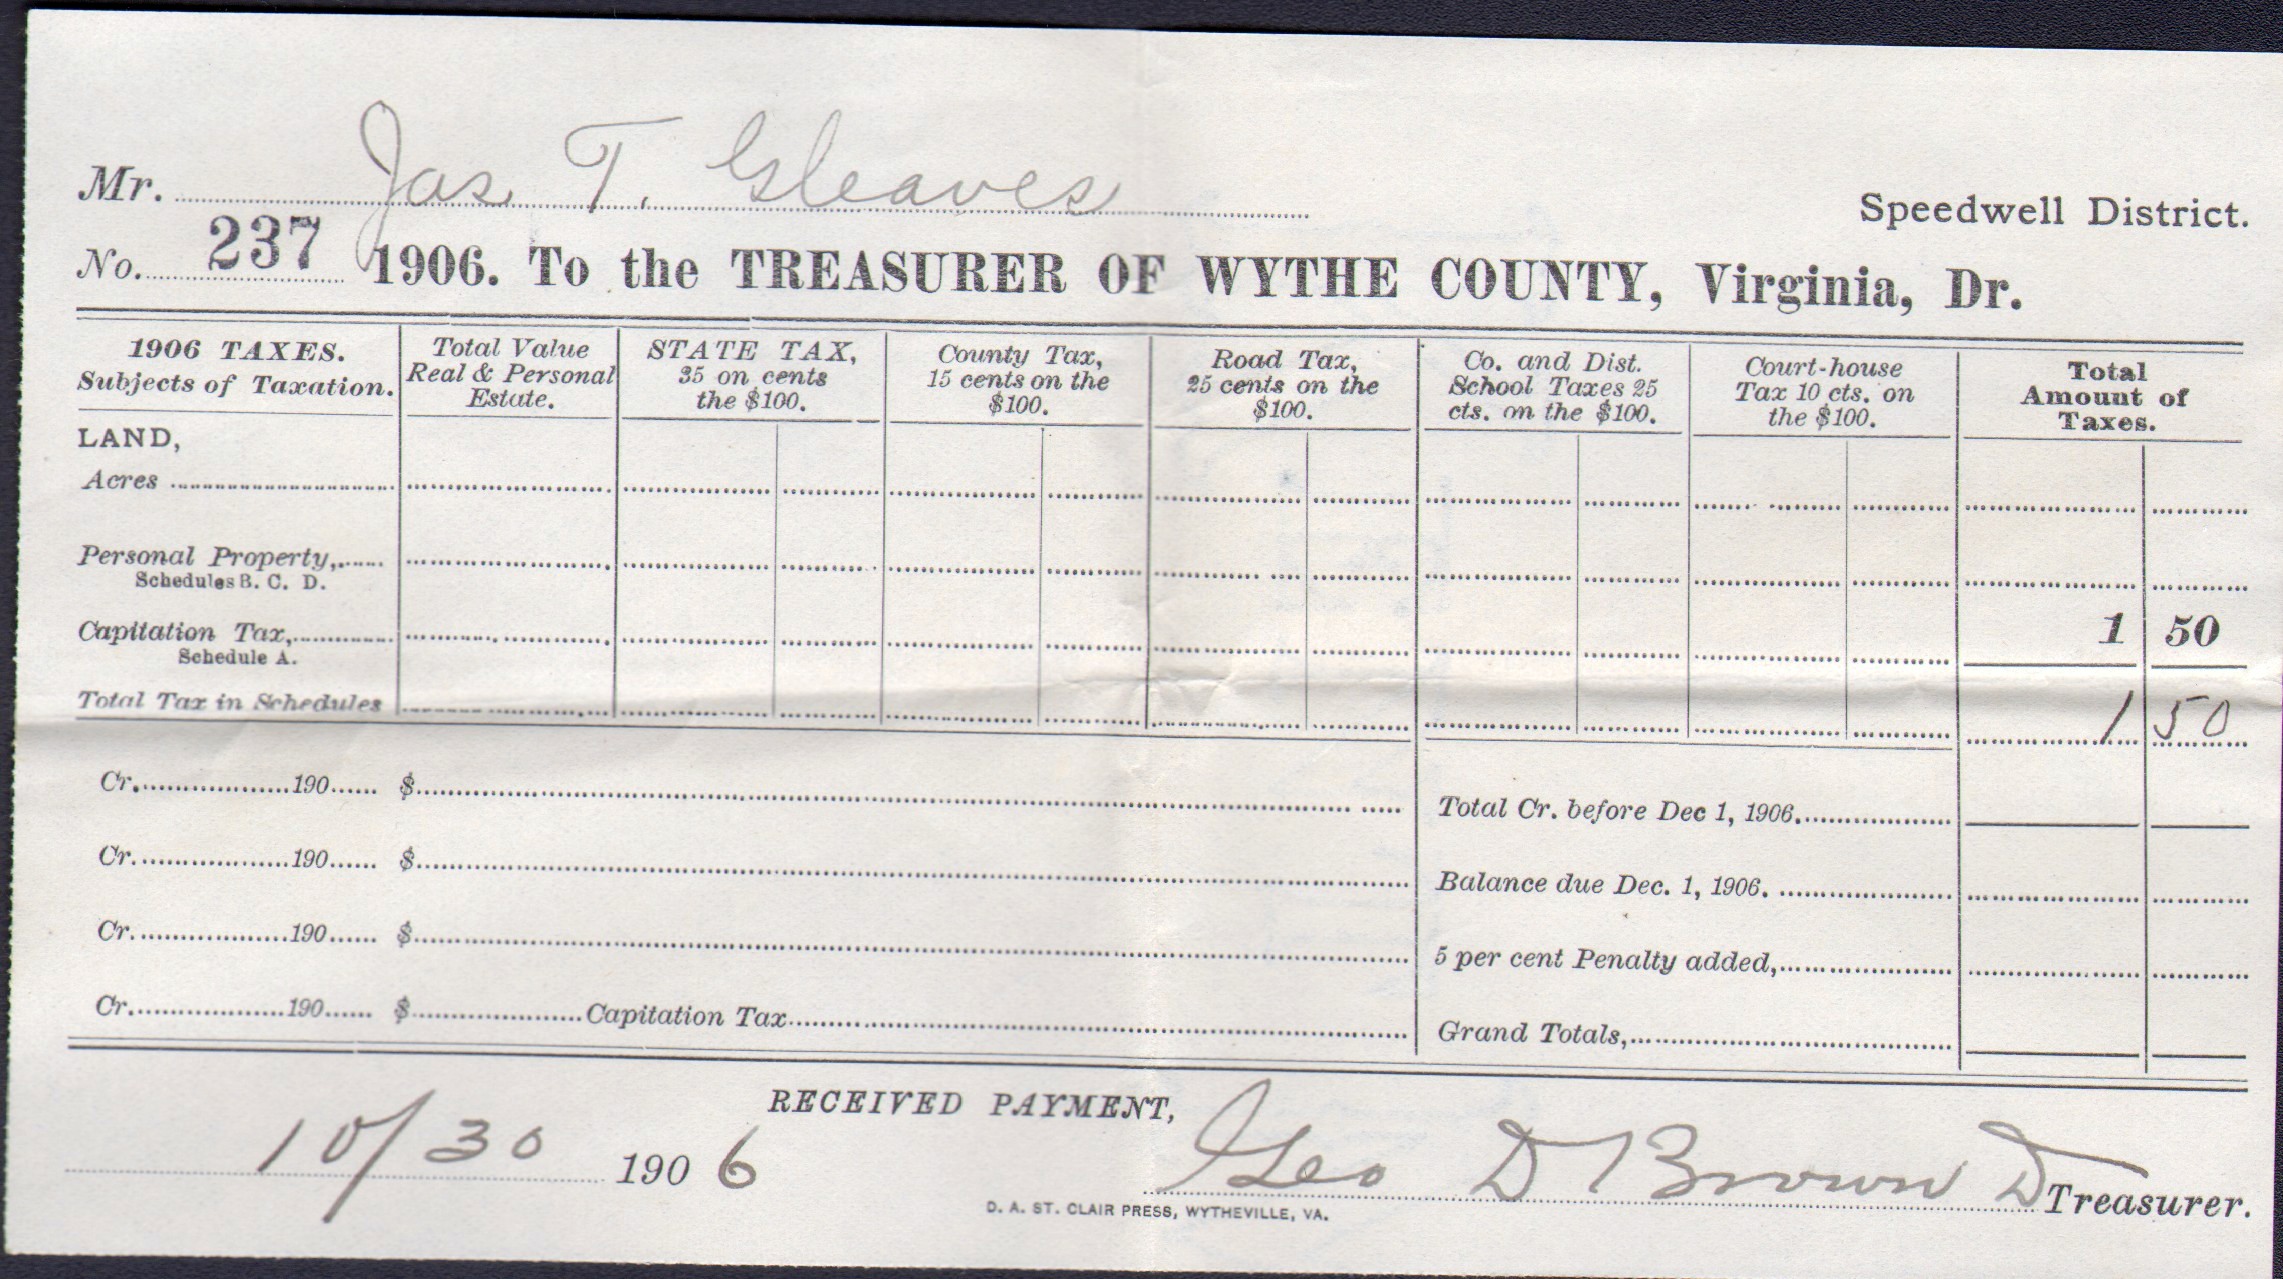 Mr. Jas. T. Gleaves
Speedwell District.
No. 237 1906. To the TREASURER OF WYTHE COUNTY, Virginia, Dr.
1906 TAXES. Subjects of Taxation.
Total Value Real & Personal Estate.
STATE TAX, 35 on cents the $100.
County Tax, 15 cents on the $100.
Road Tax, 25 cents on the $100.
Co. and Dist. School Taxes 25 cts. on the $100.
Court-house Tax 10 cts. on the $100.
Total Amount of Taxes.
LAND,
Acres
Personal Property,
Schedules B. C. D.
Capitation Tax, 1 50
Schedule A.
Total Tax in Schedules 1 50
Cr. 190 $
Total Cr. before Dec 1, 1906.
Cr. 190 $
Balance due Dec. 1, 1906.
Cr. 190 $
5 per cent Penalty added,
Cr. 190 $ Capitation Tax
Grand Totals,
RECEIVED PAYMENT,
10/30 1906
Geo D Brown D Treasurer.
D. A. ST. CLAIR PRESS, WYTHEVILLE, VA.